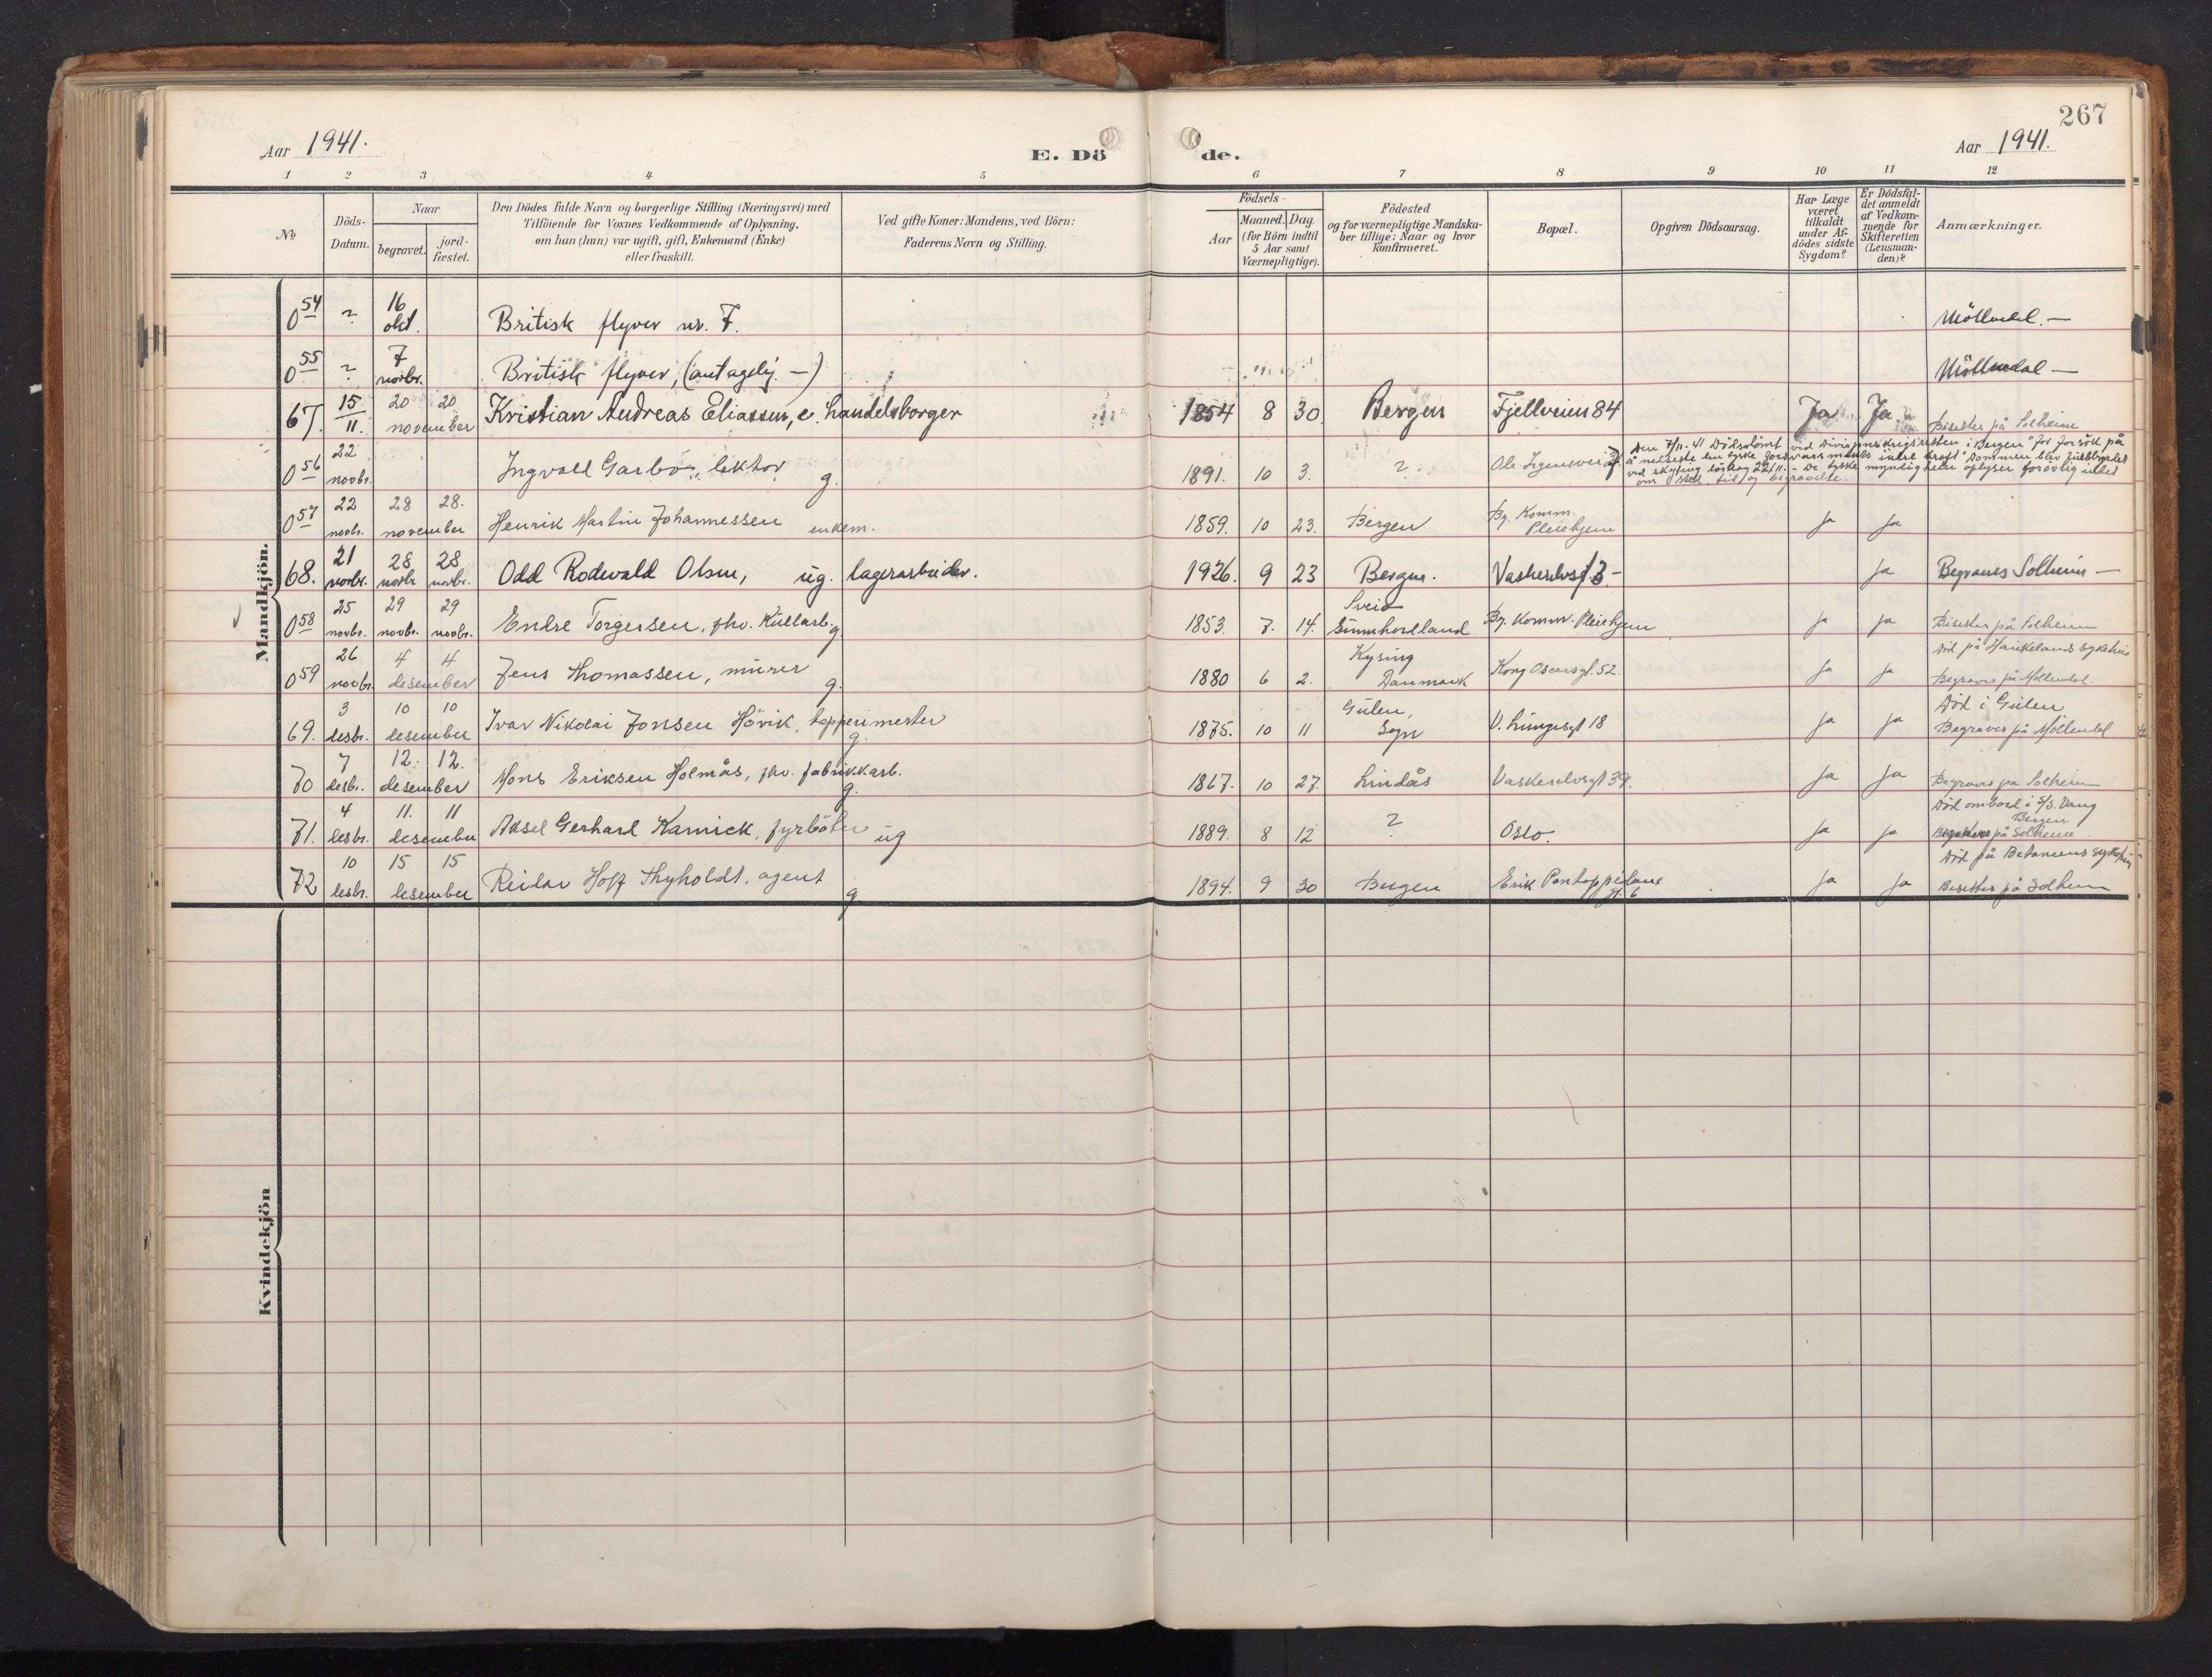 267
Aar 1941.
E. Dö de.
Aar 1941.
1 2 3 4 5 6 7 8 9 10 11 12
No
Döds-Datum.
Naar
begravet.
jord-fæstet.
Den Dödes fulde Navn og borgerlige Stilling (Næringsvei) med
Tilföiende for Voxnes Vedkommende af Oplysning,
om han (hun) var ugift, gift, Enkemand (Enke)
eller fraskilt.
Ved gifte Koner: Mandens, ved Börn:
Faderens Navn og Stilling.
Födsels-
Aar
Maaned. Dag.
(for Börn indtil
5 Aar samt
Værnepligtige).
Födested
og for værnepligtige Mandska-
ber tillige: Naar og hvor
konfirmeret.
Bopæl.
Opgiven Dödsaarsag.
Har Læge
været
tilkaldt
under Af-
dödes sidste
Sygdom?
Er Dödsfal-
det anmeldt
af Vedkom-
mende for
Skifteretten
(Lensman-
den)?
Anmærkninger.
Mandkjön.
054 ? 16 okt. Britisk flyver nr. 7. Möllendal.—
055 ? 7 novbr. Britisk flyver, (antagelig. —) Möllendal —
67. 15/11. 20 20 november Kristian Andreas Eliassen, e. handelsborger 1854 8 30. Bergen Fjellveien 84 Ja Ja Bisettes på Solheim
056 22 novbr. Ingvald Garbo, lektor g. 1891. 10 3. ? Ole Irgensvei
Den 7/11-41 Dödsdömt ved Divisjonskrigsretten i Bergen "for forsök på
å nedsette den tyske forsvarsmakts indre kraft" Dommen blev fuldbyrdet
ved skyting lördag 22/11. - De tyske myndigheter oplyser forövrig intet
om sted, tid og begravelse.
057 22 novbr. 28 28. november Henrik Martin Johannessen enkem. 1859. 10 23. Bergen Bg. Komm. Pleiehjem ja ja
68. 21 novbr. 28 novbr. 28 novbr. Odd Rodevald Olsen, ug. lagerarbeider. 1926. 9 23 Bergen. Vaskerelvsgt 3- ja Begraves Solheim —
058 25 novbr. 29 novbr. 29 novbr. Endre Torgersen, fhv. Kullarb. g. 1853. 7. 14. Sveio Sunnhordland Bg. Komm. Pleiehjem ja ja Bisettes på Solheim
059 26 novbr. 4 4 desember Jens Thomassen, murer g. 1880 6 2. Kysing Danmark Kong Oscarsgt. 52. ja ja Död på Haukelands sykehus
Begraves på Möllendal.
69. 3 desbr. 10 10 desember Ivar Nikolai Jonsen Hövik, tapperimester g. 1875. 10 11 Gulen, Sogn V. Lungesgt 18 ja ja Död i Gulen
Begraves på Möllendal
70 7 desbr. 12. 12. desember Mons Eriksen Holmås, fhv. fabrikkarb. g. 1867. 10 27. Lindås Vaskerelvsgt 39. ja ja Begraves på Solheim
71. 4 desbr. 11. 11 desember Aksel Gerhard Karnick, fyrböter ug 1889. 8 12 ? Oslo. ja ja Död ombord i S/S. Vang
Bergen
på Solheim.
72 10 desbr. 15 15 desember Reidar Hoff Thyholdt, agent g 1894. 9 30 Bergen Erik Pontoppidans gt. 6 ja ja Död på Betaniens sykehus
Bisettes på Solheim
Kvindekjön